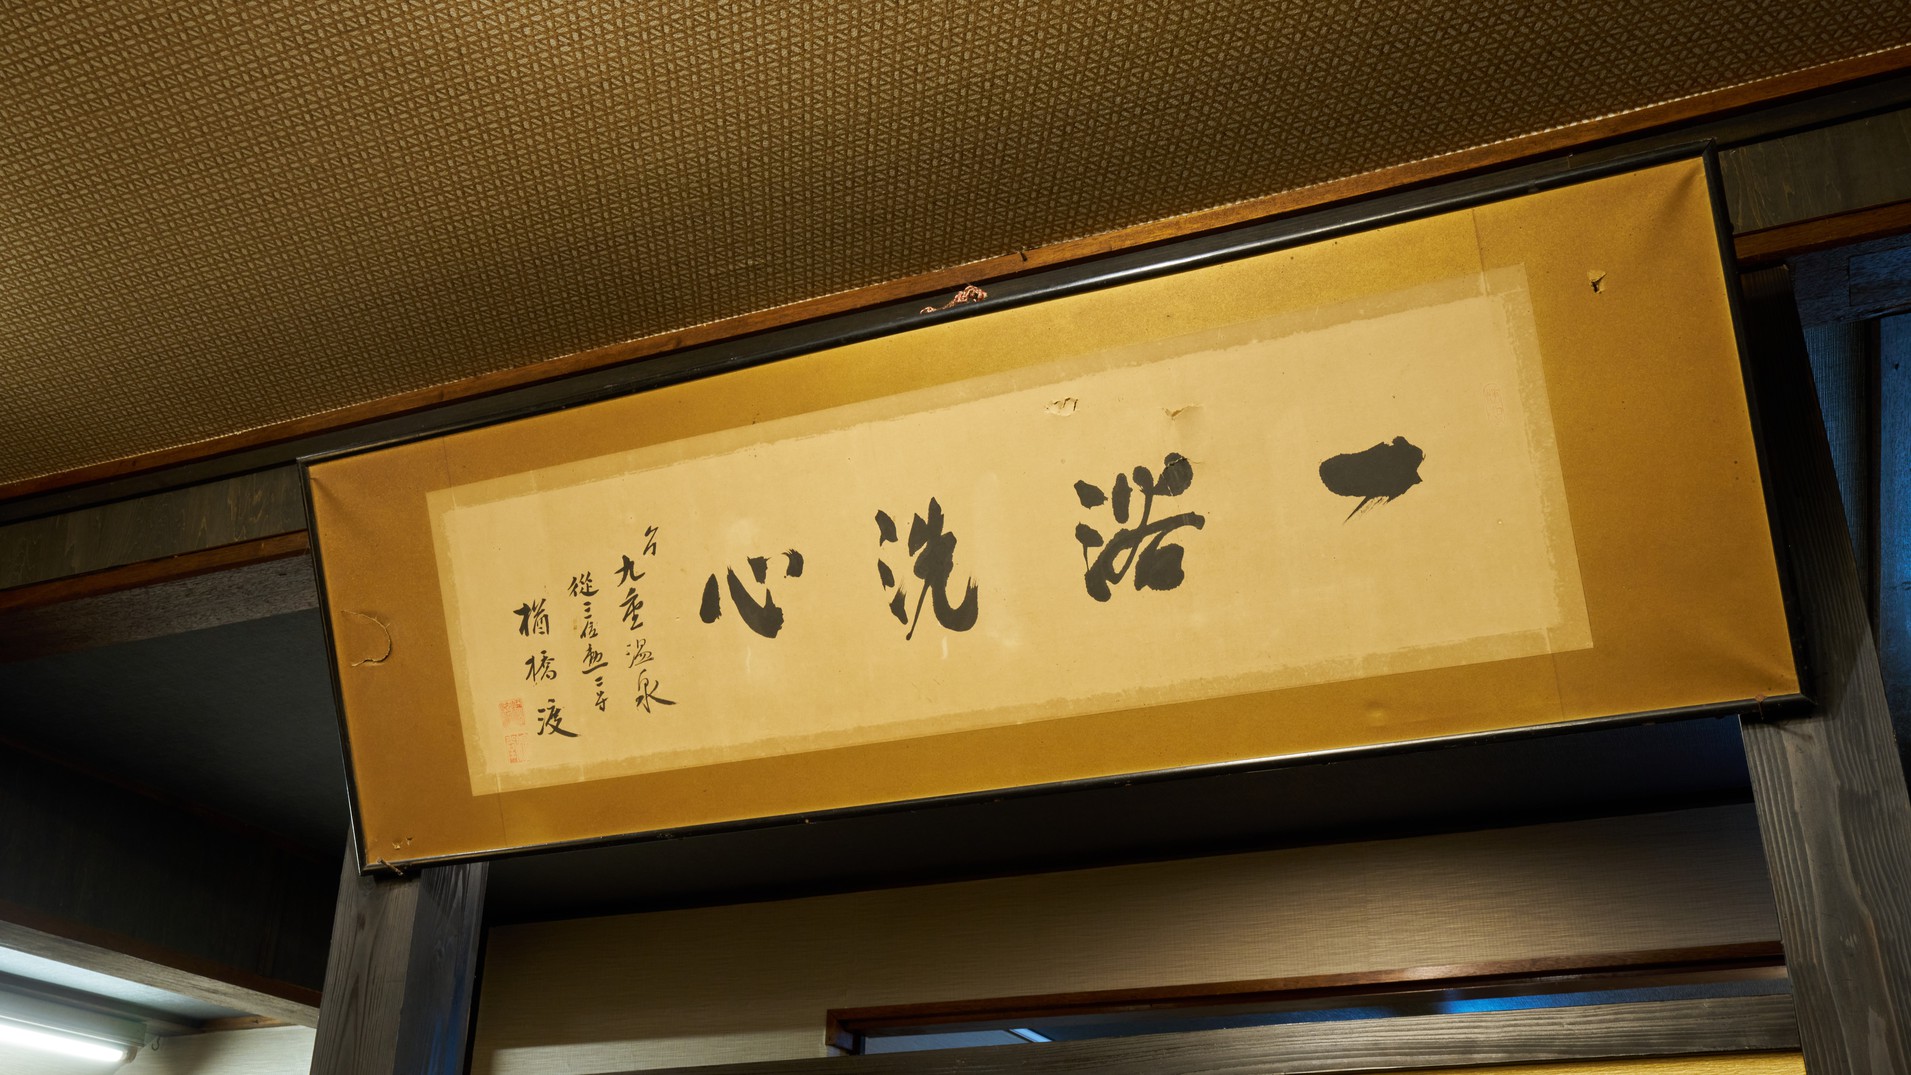 一浴洗心
九重温泉
従三位勲二等
楢橋渡